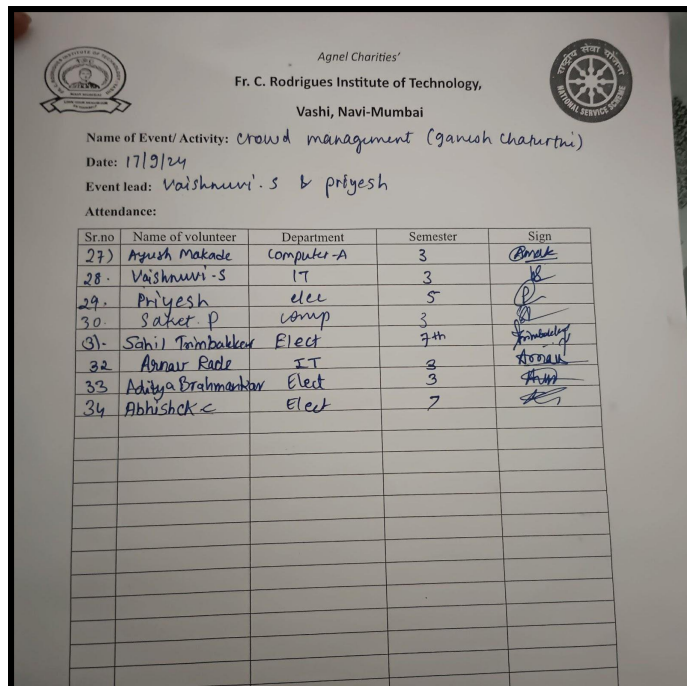 Agnel Charities'
Fr. C. Rodrigues Institute of Technology,
Vashi, Navi-Mumbai
राष्ट्रीय सेवा योजना
NATIONAL SERVICE SCHEME
Name of Event/ Activity: Crowd management (Ganesh Chaturthi)
Date: 17/9/24
Event lead: Vaishnuvi.S & Priyesh
Attendance:
Sr.no Name of volunteer Department Semester Sign
27) Ayush Makade Computer-A 3
28. Vaishnuvi-S IT 3
29. Priyesh elec 5
30. Saket.P comp 3
31. Sahil Trimbakkar Elect 7th
32 Arnav Rade IT 3 Arnav
33 Aditya Brahmankar Elect 3
34 Abhishek C Elect 7